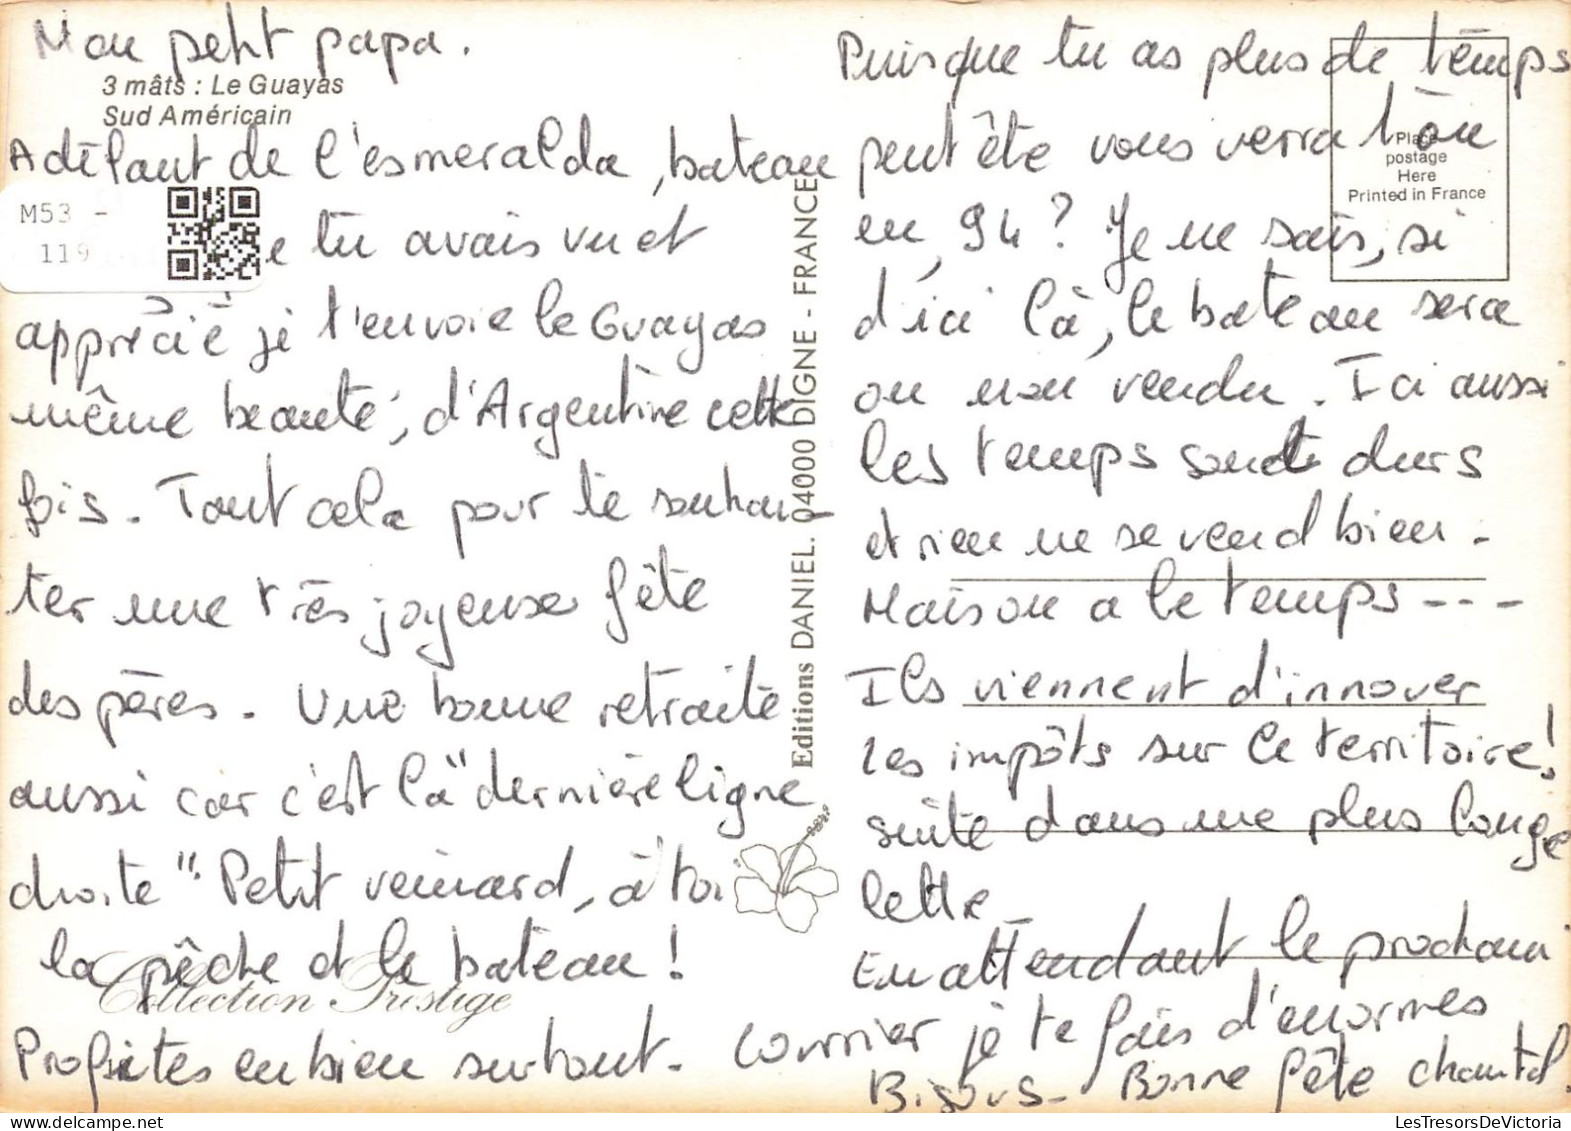 Mon petit papa.
3 mâts : Le Guayas
Sud Américain
A défaut de l'esmeralda, bateau
M53 -
119
e tu avais vu et
apprécié je t'envoie le Guayas
même beauté, d'Argentine cette
fois. Tout cela pour te souhai-
ter une très joyeuse fête
des pères. Une bonne retraite
aussi car c'est là "dernière ligne
droite". Petit veinard, à toi
la pêche et le bateau !
Collection Prestige
Profites en bien surtout.
Editions DANIEL. 04000 DIGNE - FRANCE
Puisque tu as plus de temps
peut ête vous verra t'on
en 94 ? Je ne sais, si
d'ici là, le bateau sera
ou non vendu. Ici aussi
les temps sont durs
et rien ne se vend bien.
Maison a le temps ---
Ils viennent d'innover
les impôts sur le territoire !
suite dans une plus longe
lettre.
En attendant le prochain
courrier je te fais d'enormes
Bisous. Bonne fête chantal.
Place
postage
Here
Printed in France
LesTresorsDeVictoria.com